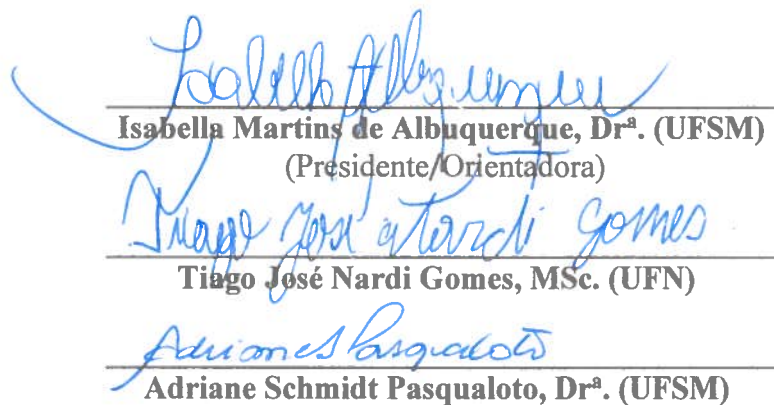 Isabella Albuquerque
Isabella Martins de Albuquerque, Drª. (UFSM)
(Presidente/Orientadora)
Tiago José Nardi Gomes
Tiago José Nardi Gomes, MSc. (UFN)
Adriane S Pasqualoto
Adriane Schmidt Pasqualoto, Drª. (UFSM)